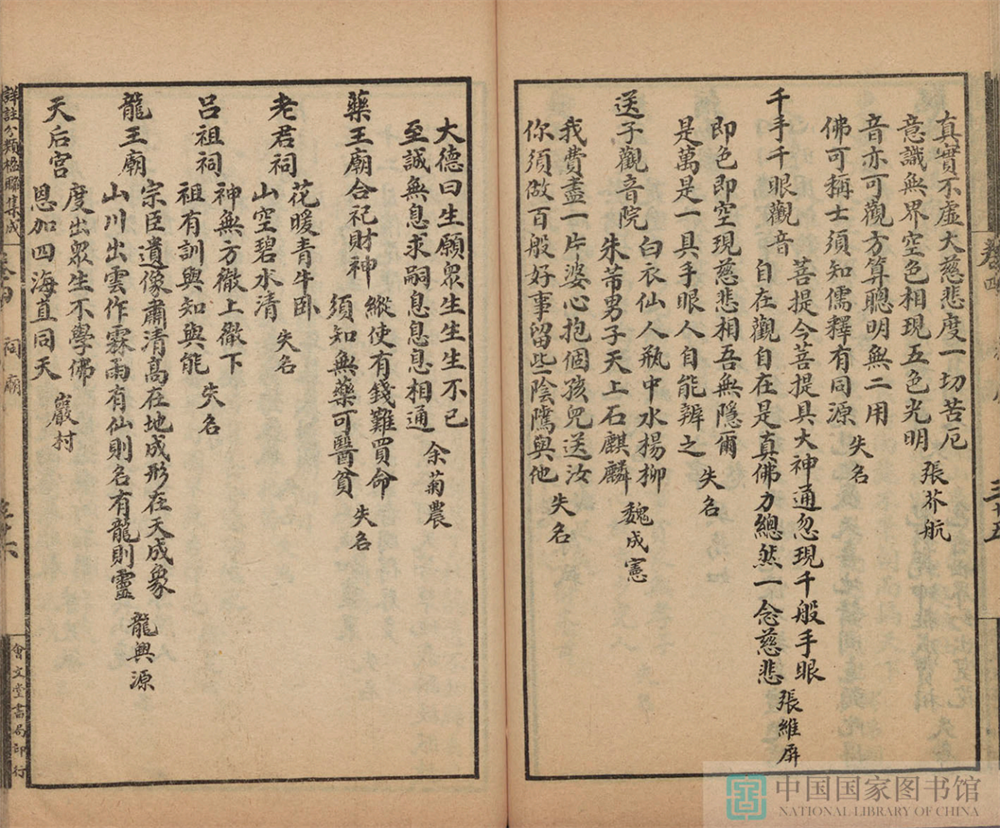 真實不虛大慈悲度一切苦厄
意識無界空色相現五色光明 張芥航
音亦可觀方算聰明無二用
佛可稱士須知儒釋有同源 失名
千手千眼觀音
菩提令菩提具大神通忽現千般手眼
自在觀自在是真佛力總然一念慈悲 張維屏
即色即空現慈悲相吾無隱爾
是萬是一具手眼人自能辨之 失名
送子觀音院
白衣仙人瓶中水楊柳
朱芾男子天上石麒麟 魏成憲
我費盡一片婆心抱個孩兒送汝
你須做百般好事留些陰隲與他 失名
大德曰生願眾生生生不已
至誠無息求嗣息息息相通 余菊農
藥王廟合祀財神
縱使有錢難買命
須知無藥可醫貧 失名
老君祠
花暖青牛臥
山空碧水清 失名
呂祖祠
神無方徹上徹下
祖有訓與知與能 失名
龍王廟
宗臣遺像肅清高在地成形在天成象
山川出雲作霖雨有仙則名有龍則靈 龍興源
天后宮
度出眾生不學佛
恩加四海直同天 巖村
詳註分類楹聯集成
卷四
祠廟
會文堂書局印行
中国国家图书馆
NATIONAL LIBRARY OF CHINA